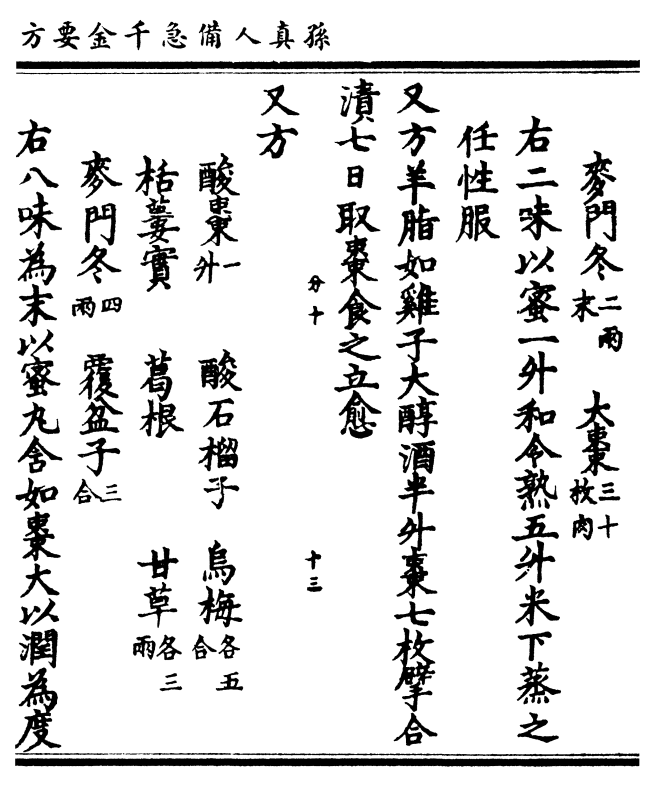 孫真人備急千金要方
麥門冬二兩末　大棗三十枚肉
右二味以蜜一升和令熟五升米下蒸之
任性服
又方羊脂如雞子大醇酒半升棗七枚擘合
漬七日取棗食之立愈
分十　十三
又方
酸棗一升　酸石榴子　烏梅各五合
栝蔞實　葛根　甘草各三兩
麥門冬四兩　覆盆子三合
右八味為末以蜜丸含如棗大以潤為度